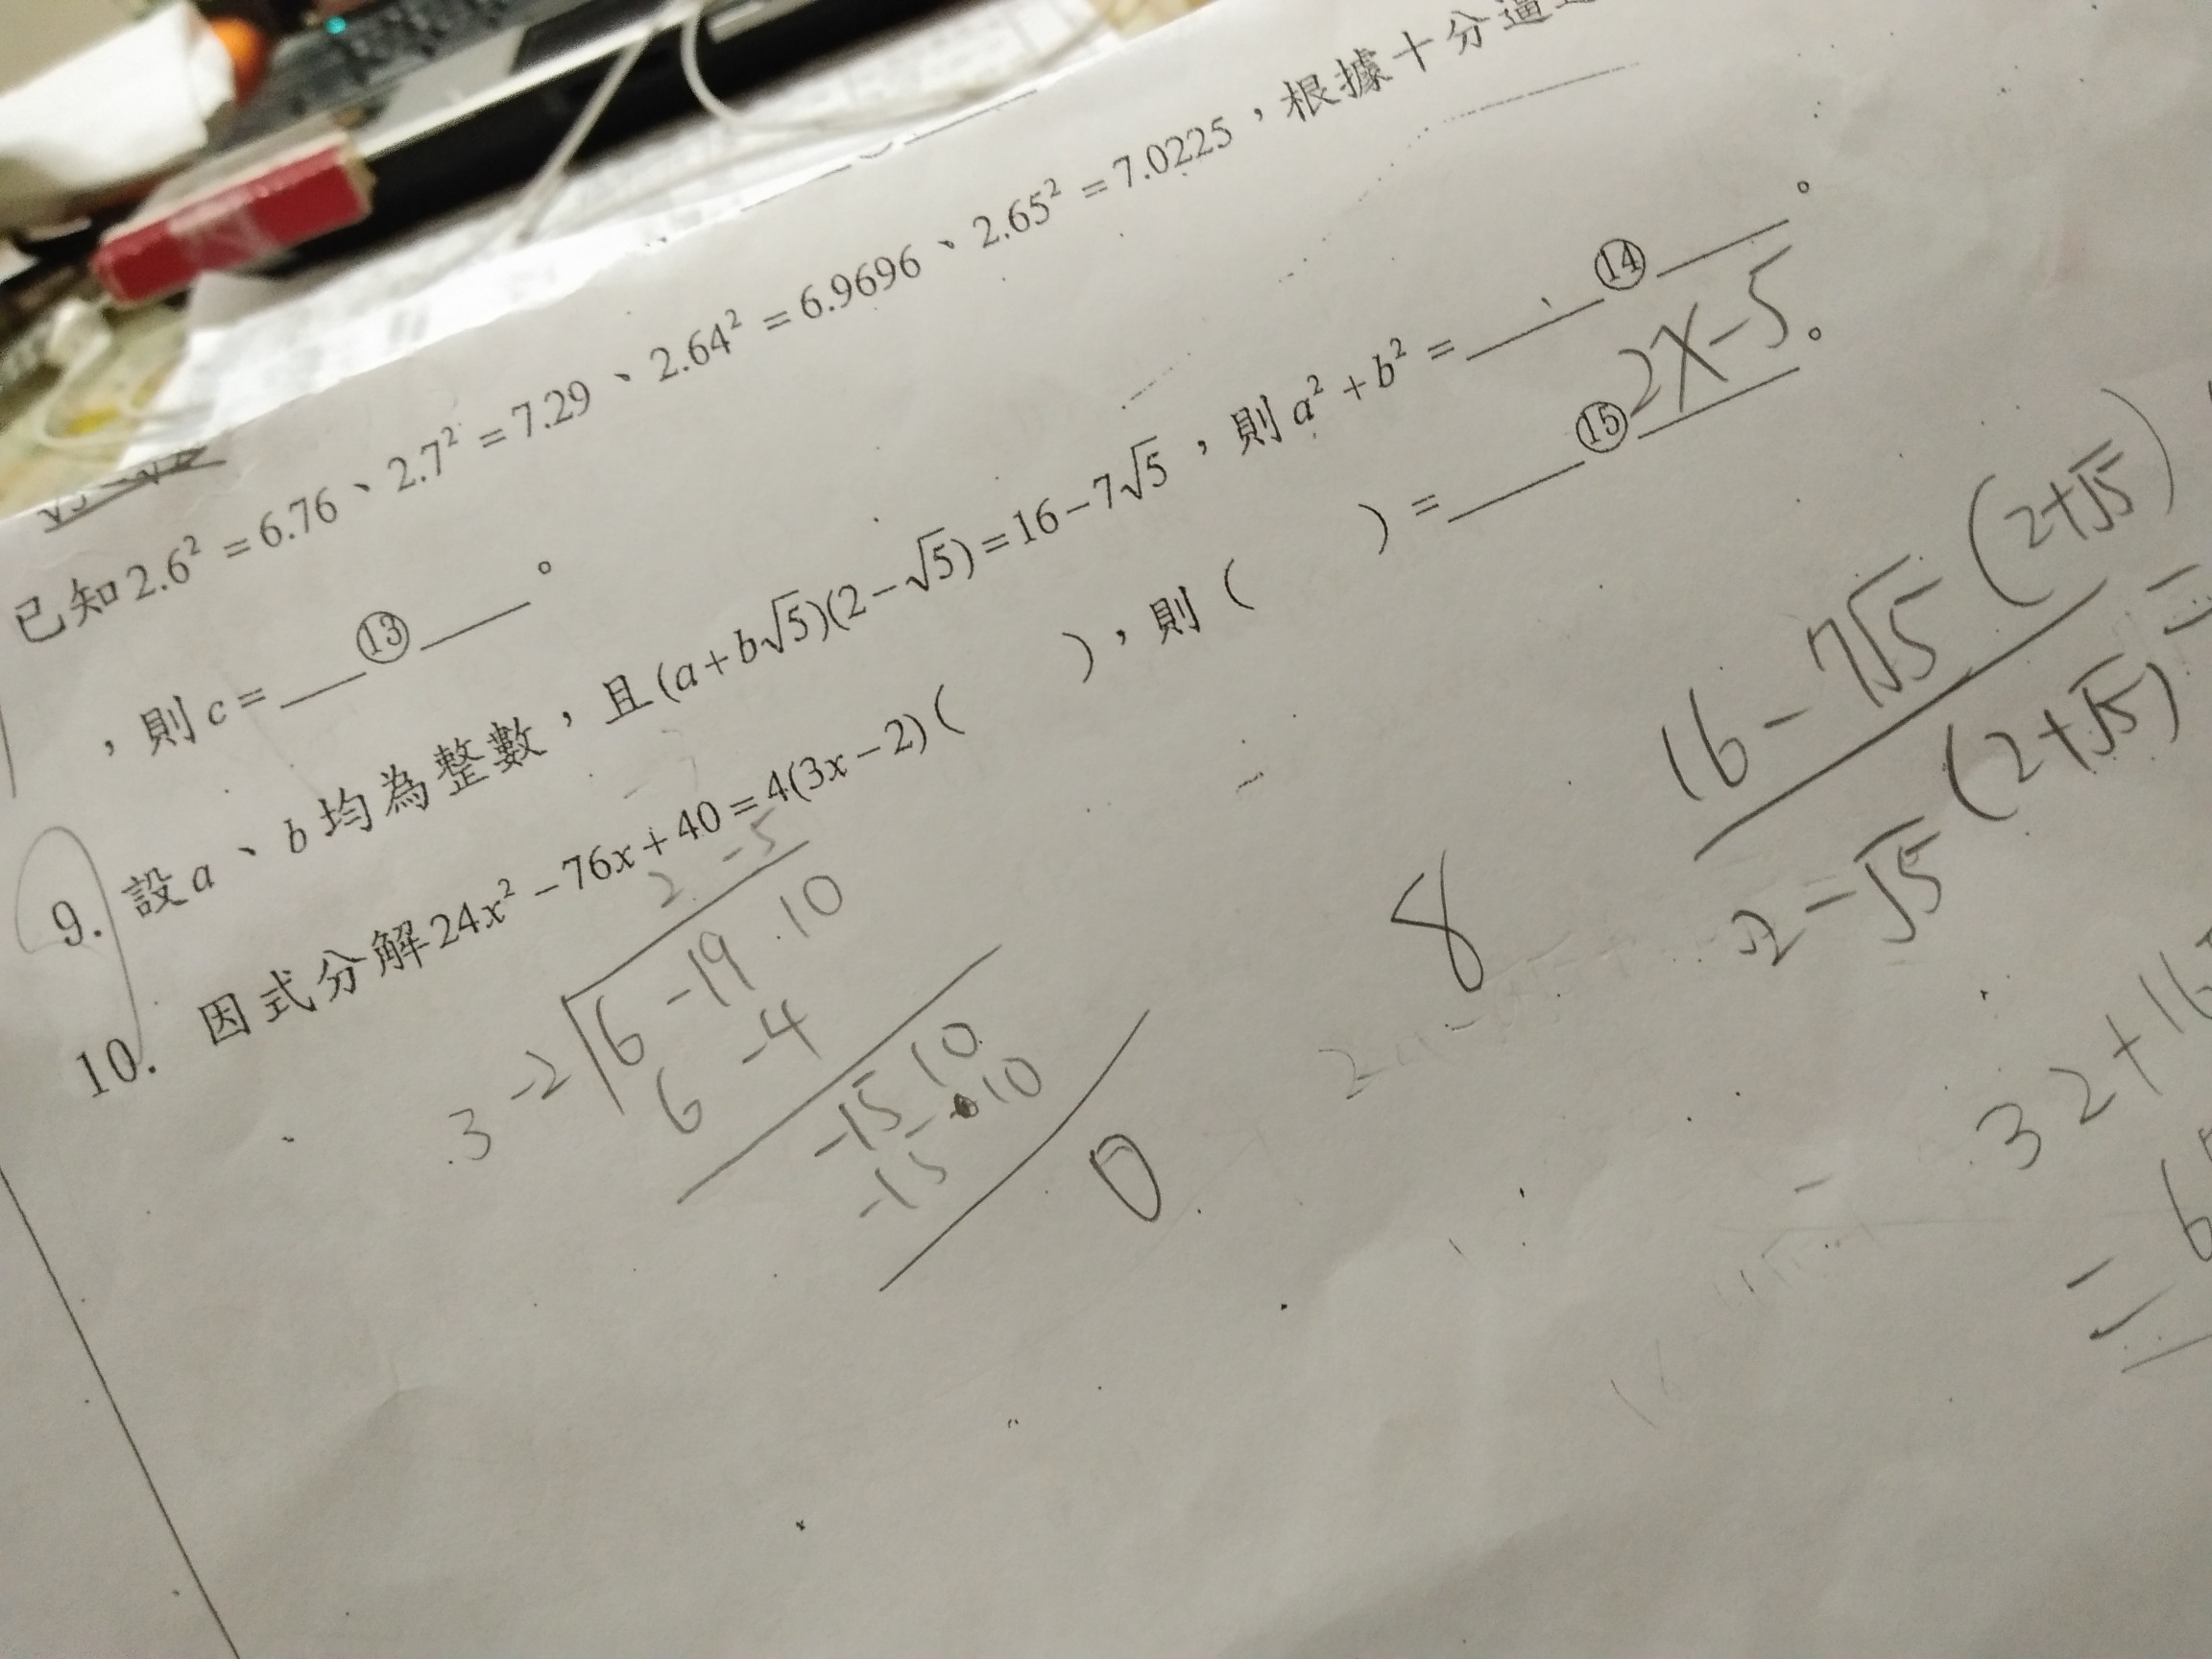 已知2.6²=6.76、2.7²=7.29、2.64²=6.9696、2.65²=7.0225,根據十分逼
,則c=⑬。
9. 設a、b均為整數,且(a+b√5)(2-√5)=16-7√5,則a²+b²=⑭。
10. 因式分解24x²-76x+40=4(3x-2)( ),則( )=⑮ 2X-5。
2 -5
3 -2 6 -19 10
6 -4
-15 10
-15 10
0
8
16-7√5 (2+√5)
2-√5 (2+√5) =
32+16
= 6